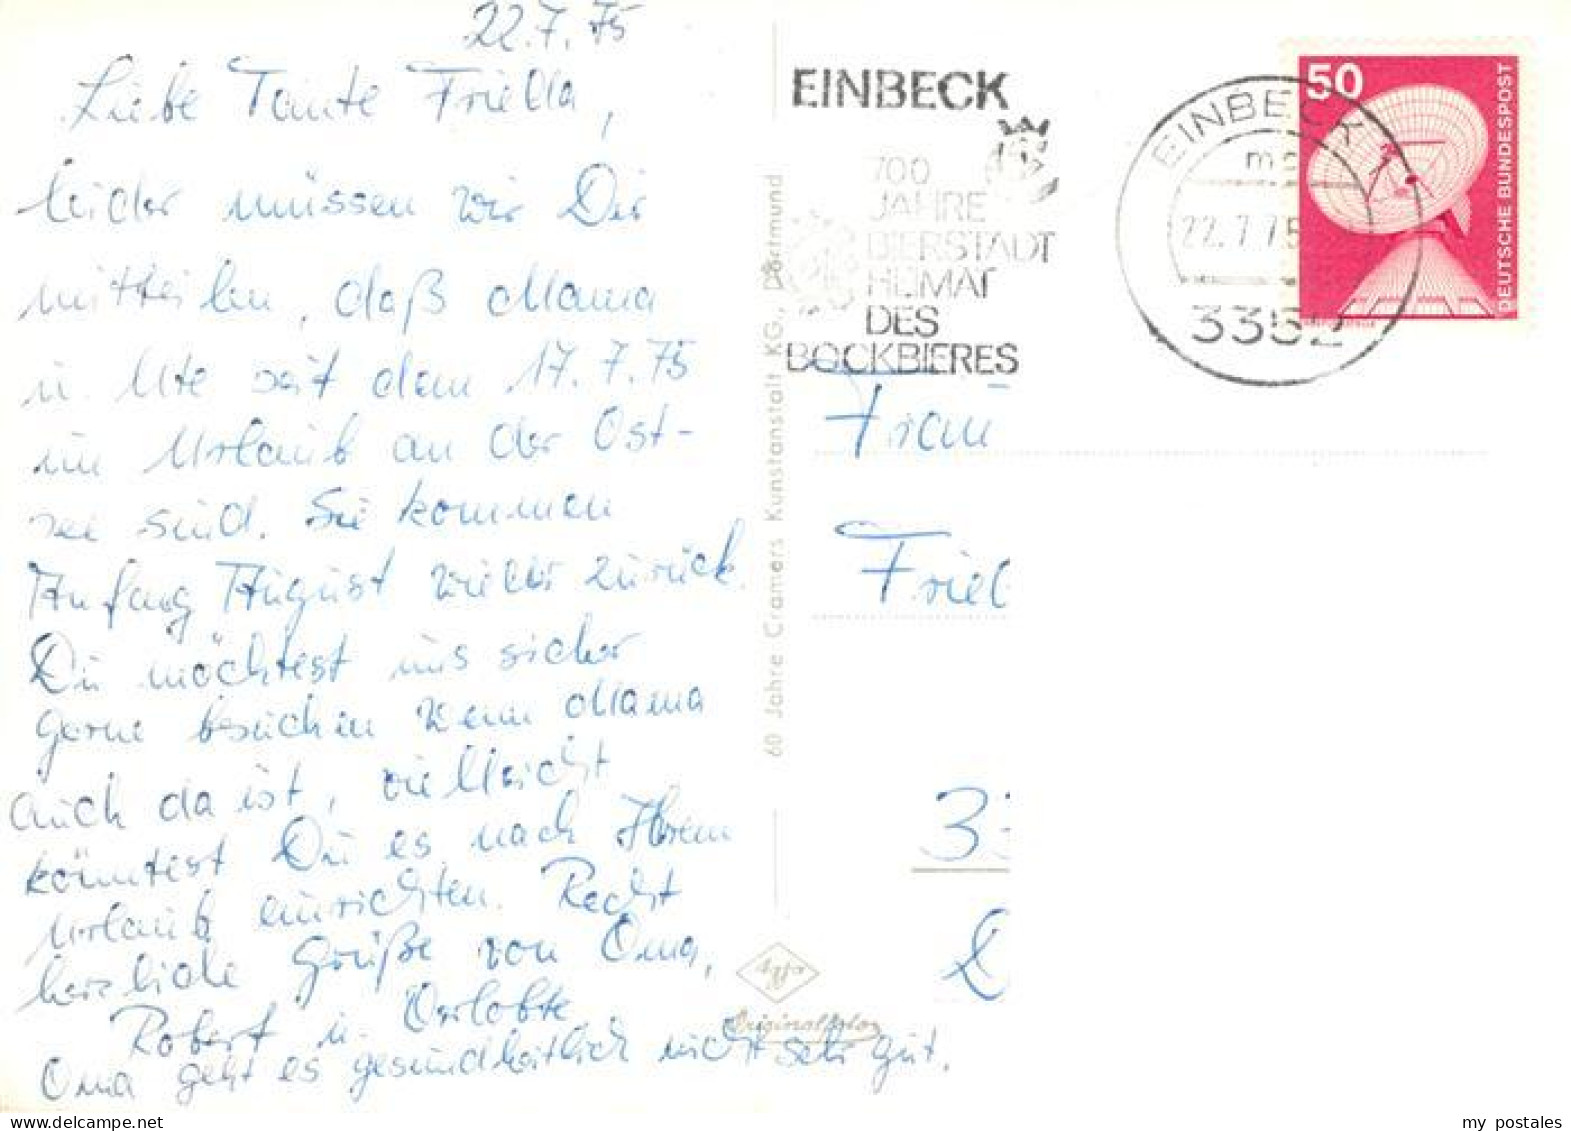 22.7.75
Liebe Tante Frieda,
leider müssen wir Dir
mitteilen, daß Mama
u. Ute seit dem 17.7.75
im Urlaub an der Ost-
see sind. Sie kommen
Anfang August wieder zurück.
Du möchtest uns sicher
gerne besuchen wenn Mama
auch da ist, vielleicht
könntest Du es nach Ihrem
Urlaub einrichten. Recht
herzliche Grüße von Oma,
Robert u. Verlobte
Oma geht es gesundheitlich nicht sehr gut.
60 Jahre Cramers Kunstanstalt KG., Dortmund
Agfa
Originalfoto
EINBECK
700
JAHRE
BIERSTADT
HEIMAT
DES
BOCKBIERES
EINBECK 1
22.7.75
3352
50
DEUTSCHE BUNDESPOST
Frau
Frie
33
my postales